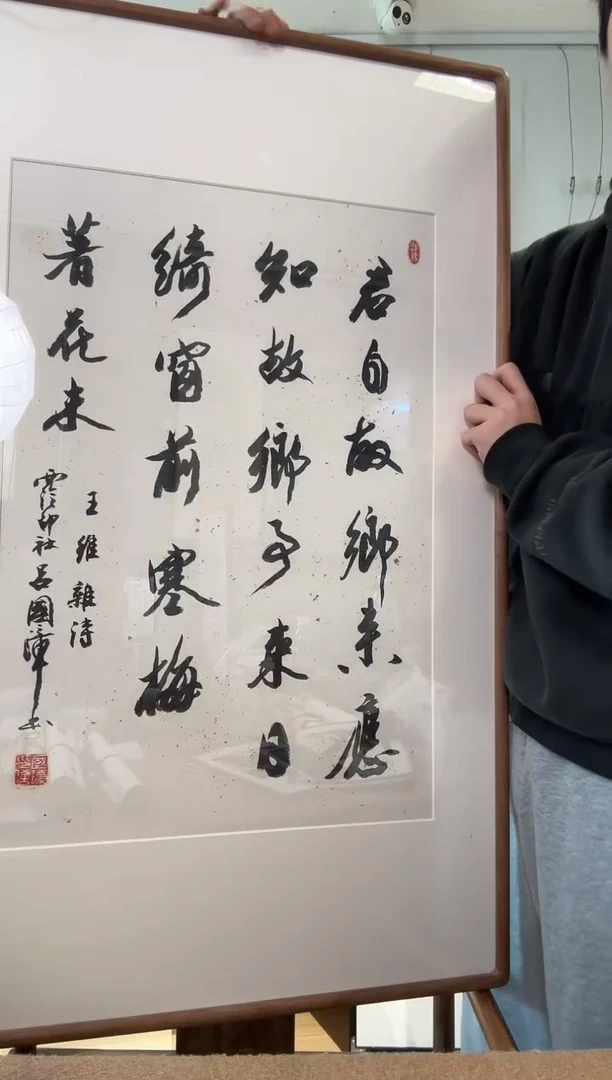 君自故鄉来應
知故鄉事来日
綺窗前寒梅
著花未
王維雜詩
雲江印社呂國璋书